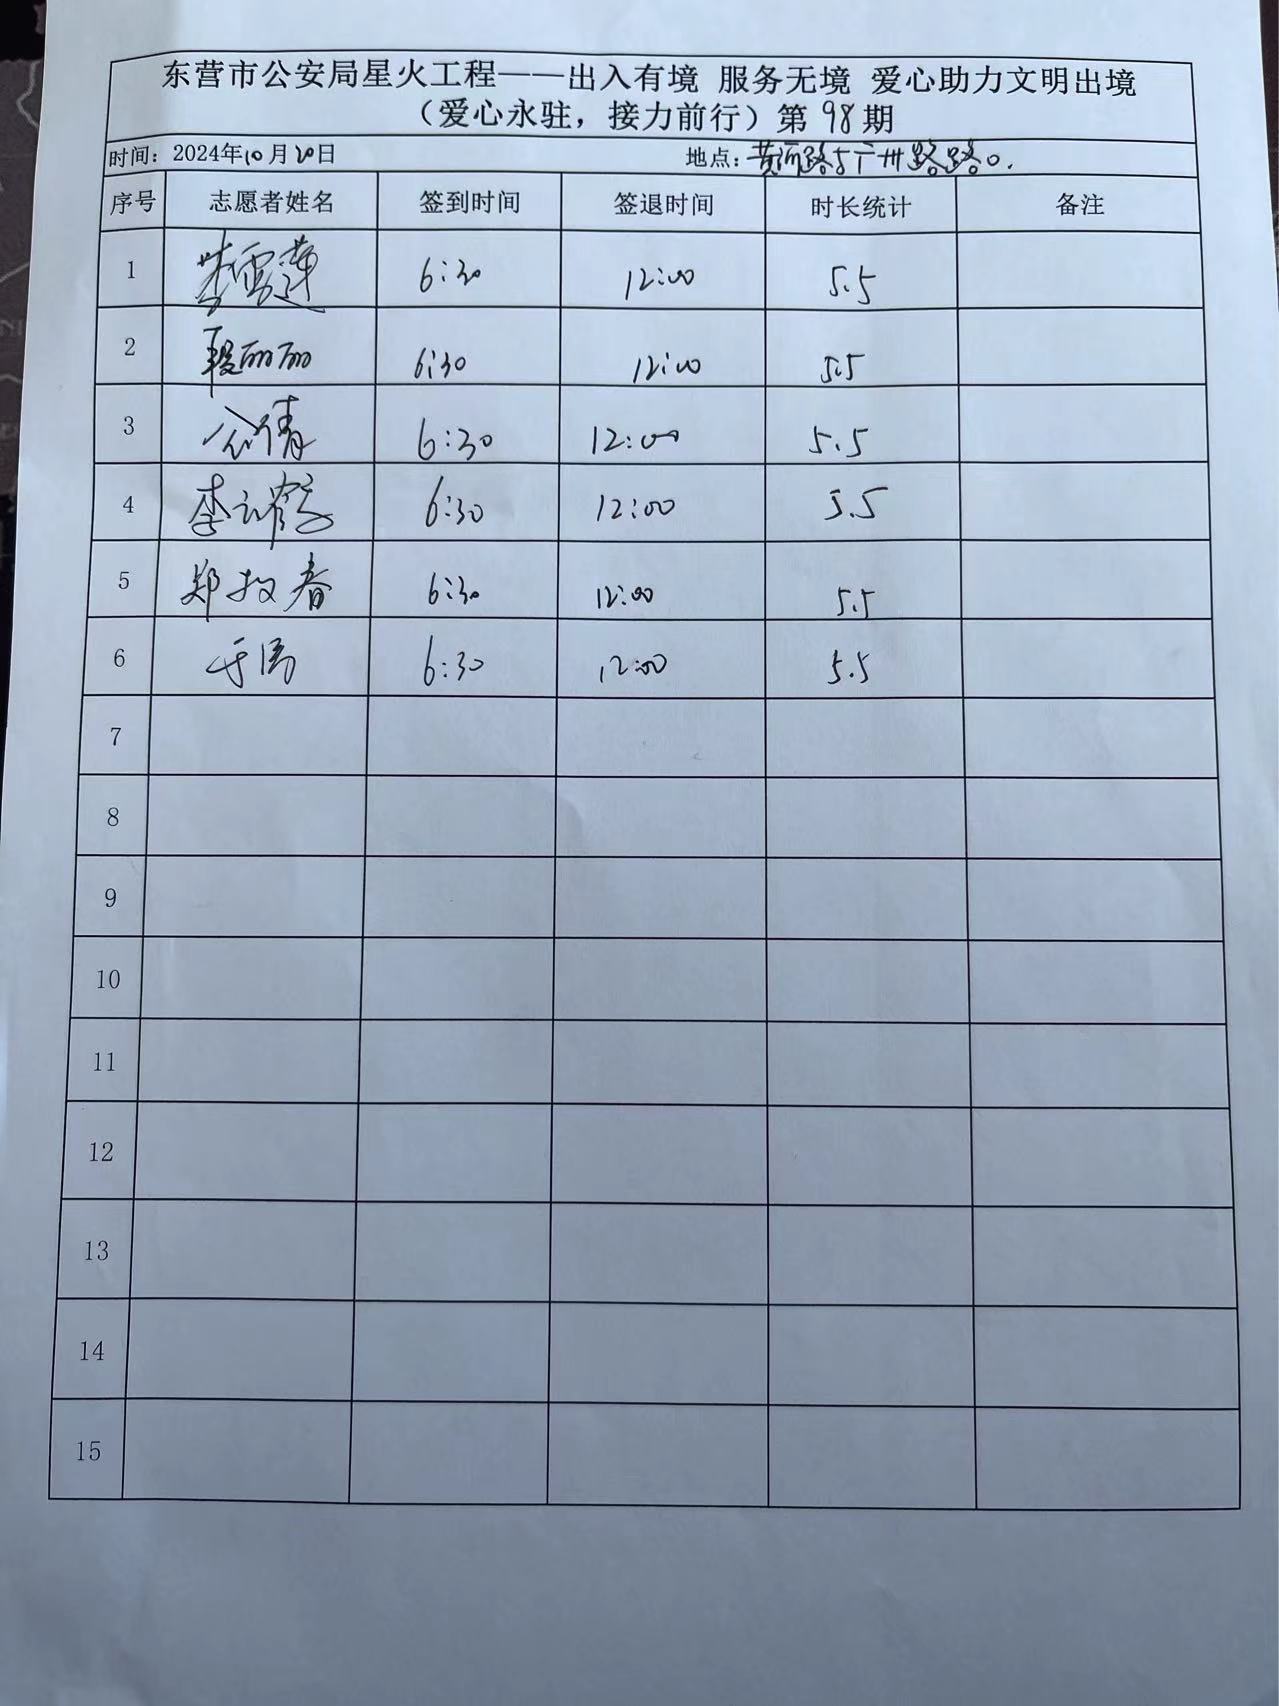 东营市公安局星火工程——出入有境 服务无境 爱心助力文明出境
（爱心永驻，接力前行）第 98 期
时间：2024年10月20日 地点：黄河路与广州路路口.
序号 志愿者姓名 签到时间 签退时间 时长统计 备注
1 雪莲 6:30 12:00 5.5
2 丽丽 6:30 12:00 5.5
3 倩 6:30 12:00 5.5
4 李 6:30 12:00 5.5
5 郑 春 6:30 12:00 5.5
6 6:30 12:00 5.5
7
8
9
10
11
12
13
14
15